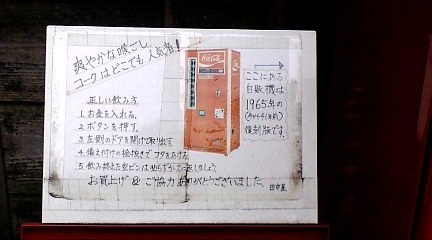 爽やかな喉ごし
コークはどこでも人気者!
Coca-Cola
ここにある
自販機は
1965年の
復刻版です。
正しい飲み方
1. お金を入れる。
2. ボタンを押す。
3. 左側のドアを開けて取り出す。
4. 備え付けの栓抜きでフタをあける。
5. 飲み終えた空ビンは
お買上げ & ご協力ありがとうございました。
田中屋